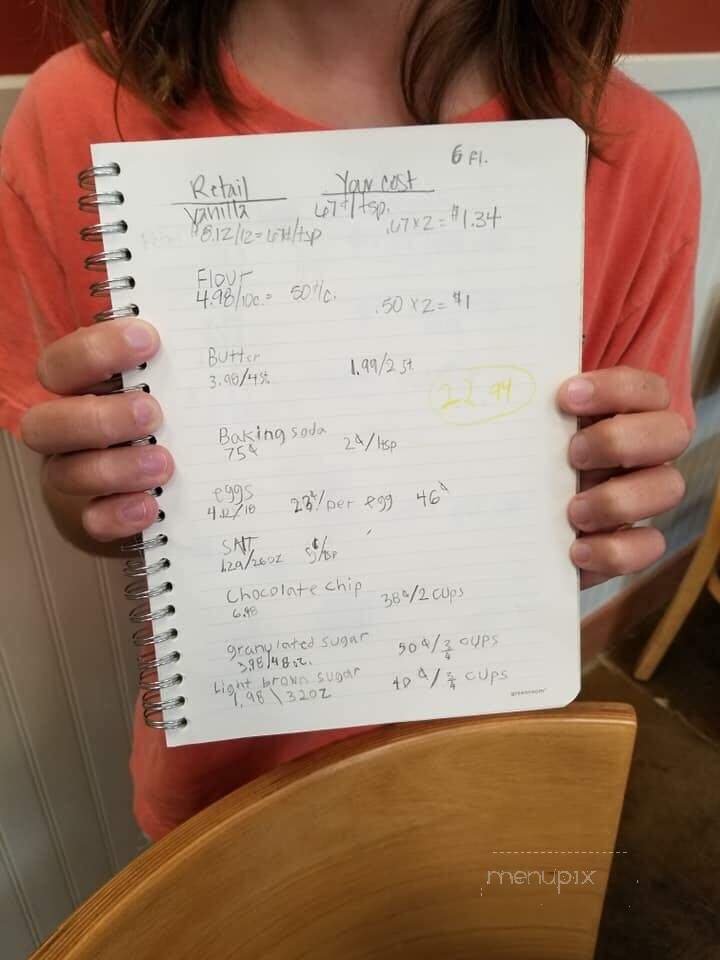 6 Fl.
Retail Your cost
Vanilla 67¢/tsp.
$8.12/12=67¢/tsp .67x2=$1.34
Flour
4.98/10c.= 50¢/c. .50 x 2= $1
Butter
3.98/4st. 1.99/2 st.
22.94
Baking soda
75¢ 2¢/tsp
eggs
4.12/18 23¢/per egg 46¢
SAlT
1.29/26oz 5¢/tsp
Chocolate chip
6.98 38¢/2 cups
granylated sugar
3.98/48oz. 50¢/3/4 cups
Light brown sugar
1.98\32oz 40¢/3/4 cups
greenroom
menupix